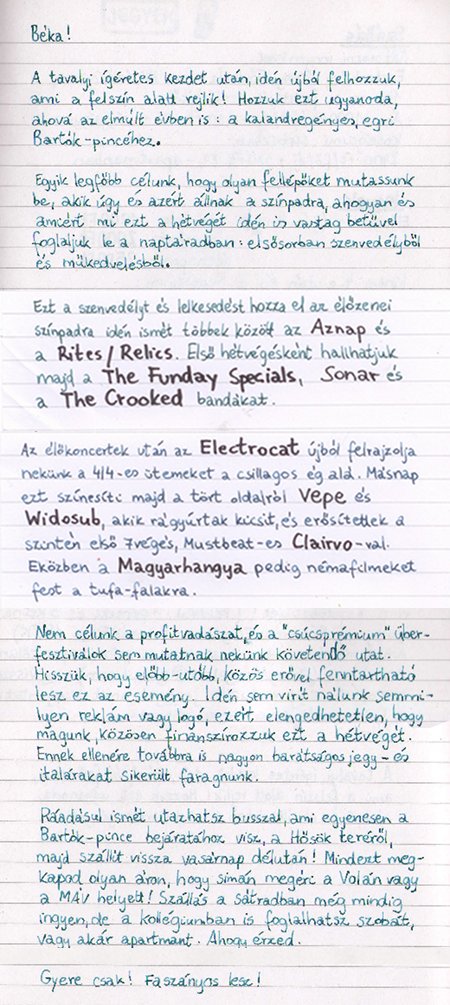 Béka!
A tavalyi ígéretes kezdet után, idén újból felhozzuk,
ami a felszín alatt rejlik! Hozzuk ezt ugyanoda,
ahová az elmúlt évben is: a kalandregényes, egri
Bartók-pincéhez.
Egyik legfőbb célunk, hogy olyan fellépőket mutassunk
be, akik úgy és azért állnak a színpadra, ahogyan és
amiért mi ezt a hétvégét idén is vastag betűvel
foglaljuk le a naptáradban: elsősorban szenvedélyből
és műkedvelésből.
Ezt a szenvedélyt és lelkesedést hozza el az élőzenei
színpadra idén ismét többek között az Aznap és
a Rites/Relics. Első hétvégésként hallhatjuk
majd a The Funday Specials, Sonar és
a The Crooked bandákat.
Az élőkoncertek után az Electrocat újból felrajzolja
nekünk a 4/4-es ütemeket a csillagos ég alá. Másnap
ezt színesíti majd a tört oldalról Vepe és
Widosub, akik rágyúrtak kicsit, és erősítettek a
szintén első 7véges, Mustbeat-es Clairvo-val.
Eközben a Magyarhangya pedig némafilmeket
fest a tufa-falakra.
Nem célunk a profitvadászat, és a "csúcsprémium" über-
fesztiválok sem mutatnak nekünk követendő utat.
Hisszük, hogy előbb-utóbb, közös erővel fenntartható
lesz ez az esemény. Idén sem virít nálunk semmi-
lyen reklám vagy logó, ezért elengedhetetlen, hogy
magunk, közösen finanszírozzuk ezt a hétvégét.
Ennek ellenére továbbra is nagyon barátságos jegy- és
italárakat sikerült faragnunk.
Ráadásul ismét utazhatsz busszal, ami egyenesen a
Bartók-pince bejáratához visz, a Hősök teréről,
majd szállít vissza vasárnap délután! Mindezt meg-
kapod olyan áron, hogy simán megéri a Volán vagy
a MÁV helyett! Szállás a sátradban még mindig
ingyen, de a kollégiumban is foglalhatsz szobát,
vagy akár apartmant. Ahogy érzed.
Gyere csak! Faszányos lesz!